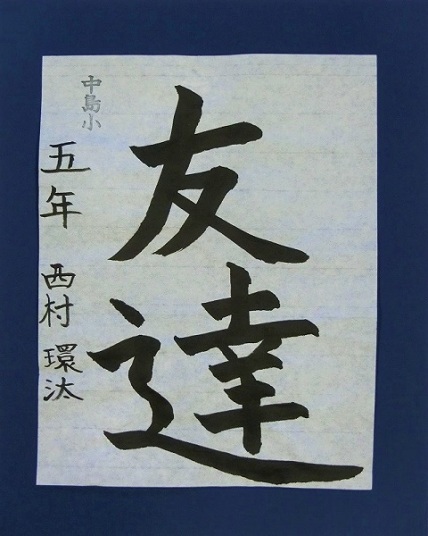 友達
中島小
五年 西村 環汰